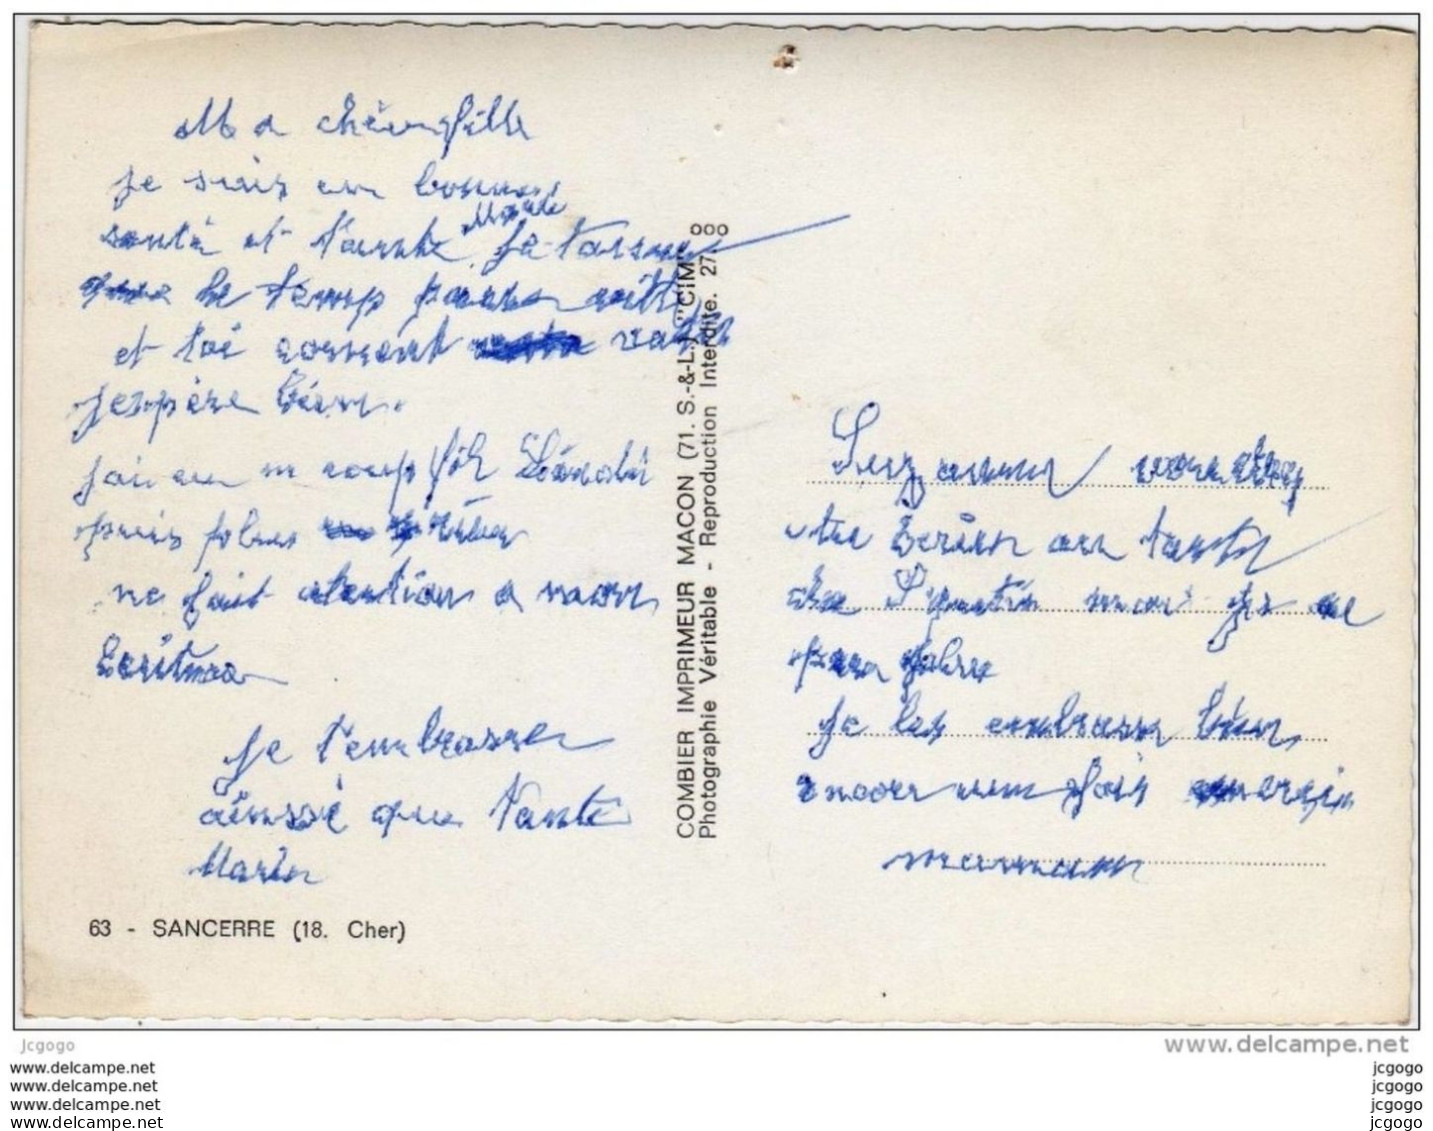 Ma chère fille
je suis en bonne
santé et tante Marie
le temp passe vitte
et toi coment vatu
jespère bien.
jai eu un coup fil
puis plus rien
ne fait atention a mon
Ecriture
je t'embrasse
ainssi que tante
Marie
63 - SANCERRE (18. Cher)
COMBIER IMPRIMEUR MACON (71. S.-&-L.) "CIM"
Photographie Véritable - Reproduction Interdite. 27. 000
Suzanne
tu Ecrire a tante
mai je ne
plus
je les embrasse bien
encore une fois merci
maman
Jcgogo
www.delcampe.net
www.delcampe.net
www.delcampe.net
www.delcampe.net
www.delcampe.net
jcgogo
jcgogo
jcgogo
jcgogo